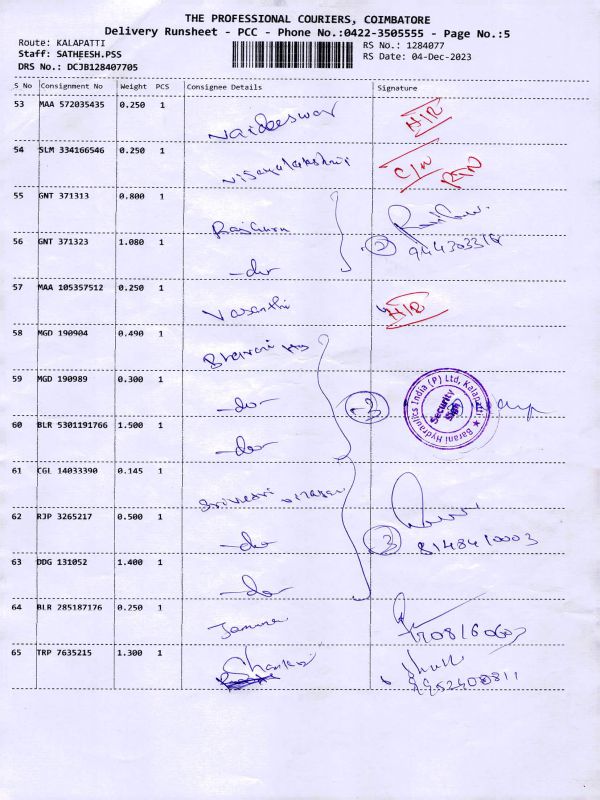 THE PROFESSIONAL COURIERS, COIMBATORE
Delivery Runsheet - PCC - Phone No.:0422-3505555 - Page No.:5
Route: KALAPATTI
RS No.: 1284077
Staff: SATHEESH.PSS
RS Date: 04-Dec-2023
DRS No.: DCJB128407705
S No Consignment No Weight PCS Consignee Details Signature
53 MAA 572035435 0.250 1 H/R
54 SLM 334166546 0.250 1 Vijayalakshmi C/N
55 GNT 371313 0.800 1 Rajguru
56 GNT 371323 1.080 1 -do- 2
57 MAA 105357512 0.250 1 Vasanthi H/R
58 MGD 190904 0.490 1
59 MGD 190989 0.300 1 -do- 3
Barani Hydraulics India (P) Ltd, Kalapatti
Security
Sign
60 BLR 5301191766 1.500 1 -do-
61 CGL 14033390 0.145 1
62 RJP 3265217 0.500 1 -do- 3 8148410003
63 DDG 131052 1.400 1 -do-
64 BLR 285187176 0.250 1
65 TRP 7635215 1.300 1